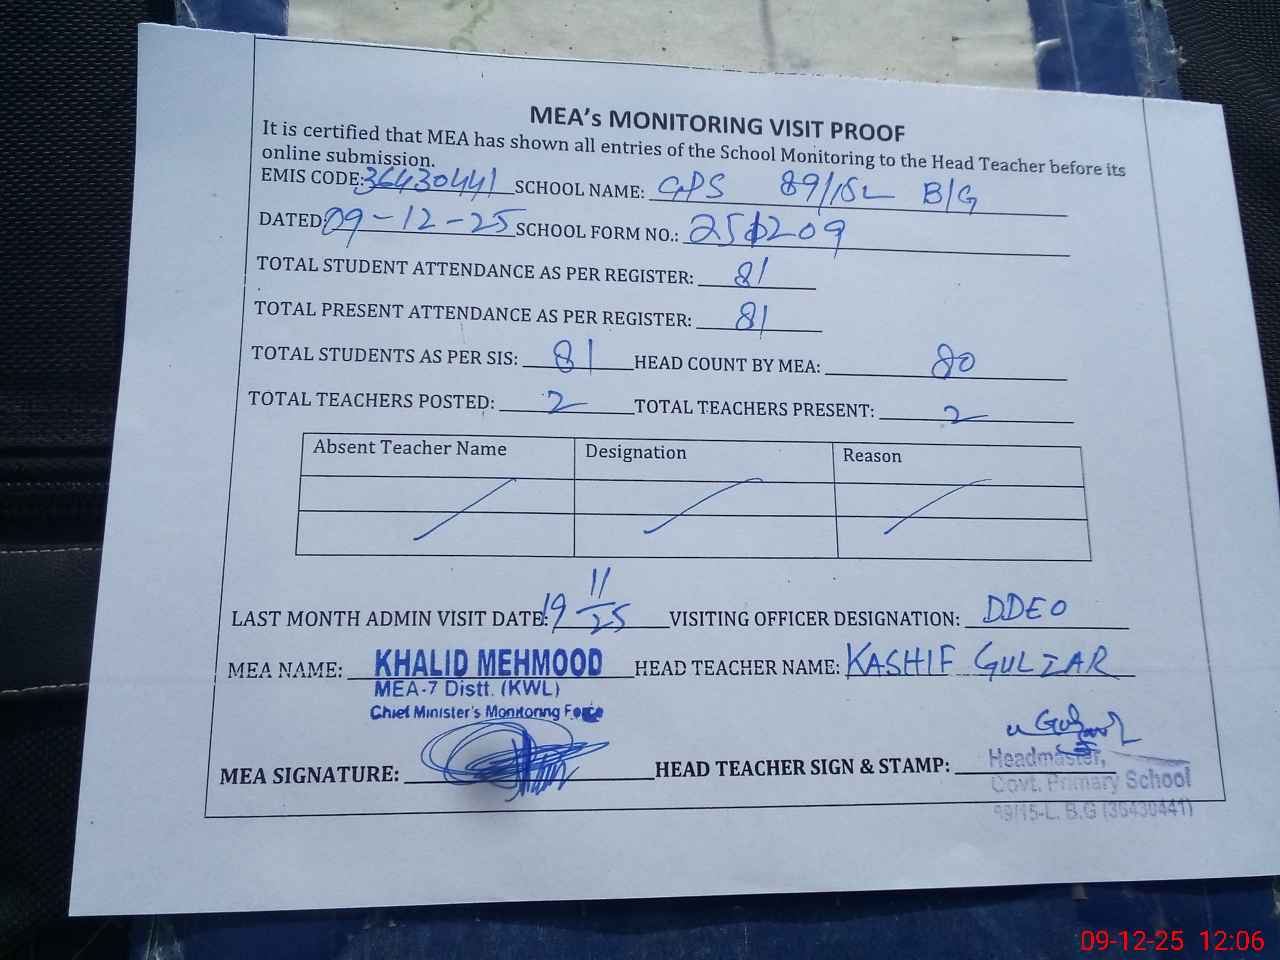 MEA's MONITORING VISIT PROOF
It is certified that MEA has shown all entries of the School Monitoring to the Head Teacher before its
online submission.
EMIS CODE: 36430441 SCHOOL NAME: GPS 89/15L B/G
DATED 09-12-25 SCHOOL FORM NO.: 251209
TOTAL STUDENT ATTENDANCE AS PER REGISTER: 81
TOTAL PRESENT ATTENDANCE AS PER REGISTER: 81
TOTAL STUDENTS AS PER SIS: 81 HEAD COUNT BY MEA: 80
TOTAL TEACHERS POSTED: 2 TOTAL TEACHERS PRESENT: 2
Absent Teacher Name Designation Reason
LAST MONTH ADMIN VISIT DATE: 19 11/25 VISITING OFFICER DESIGNATION: DDEO
MEA NAME: KHALID MEHMOOD HEAD TEACHER NAME: KASHIF GULZAR
MEA-7 Distt. (KWL)
Chief Minister's Monitoring Force
MEA SIGNATURE: HEAD TEACHER SIGN & STAMP:
Headmaster,
Govt. Primary School
89/15-L. B.G (36430441)
09-12-25 12:06